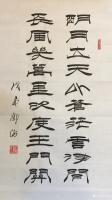 明月出天山蒼茫雲海間
長風幾萬里吹度玉門關